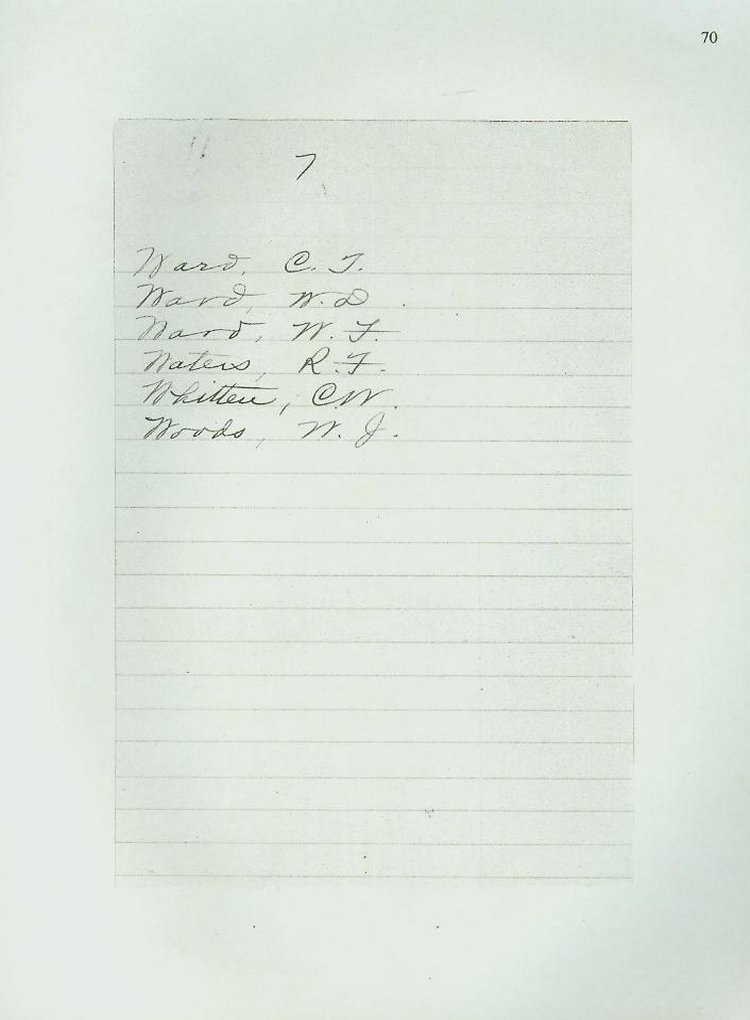 70
7
Ward, C. T.
Ward, W. D.
Ward, W. F.
Waters, R. F.
Whitten, C.W.
Woods, W. J.